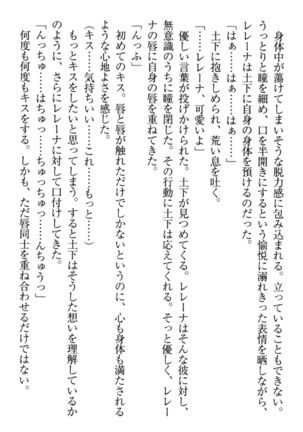 身体中が蕩けてしまいそうな脱力感に包み込まれる。立っていることもできない。
うっとりと瞳を細め、口を半開きにするという愉悦に溺れきった表情を晒しながら、
レレーナは土下に自身の身体を預けるのだった。
「はぁ……はぁ……はぁ」
土下に抱きしめられ、荒い息を吐く。
「……レレーナ、可愛いよ」
優しい言葉が投げかけられた。土下が見つめてくる。レレーナはそんな彼に対し、
無意識のうちに瞳を閉じた。その行動に土下は応えてくれる。そっと優しく、レレー
ナの唇に自身の唇を重ねてきた。
「んっふ」
初めてのキス。唇と唇が触れただけでしかないというのに、心も身体も満たされる
ような心地よさを感じた。
（キス……気持ちいい……これ……もっと……）
もっとキスをしたいと思ってしまう。すると土下はそうした想いを理解しているか
のように、さらにレレーナに対して口付けしてきた。
「んっちゅ……はちゅっ……ちゅっちゅっ……んちゅうっ」
何度も何度もキスをする。しかも、ただ唇同士を重ね合わせるだけではない。